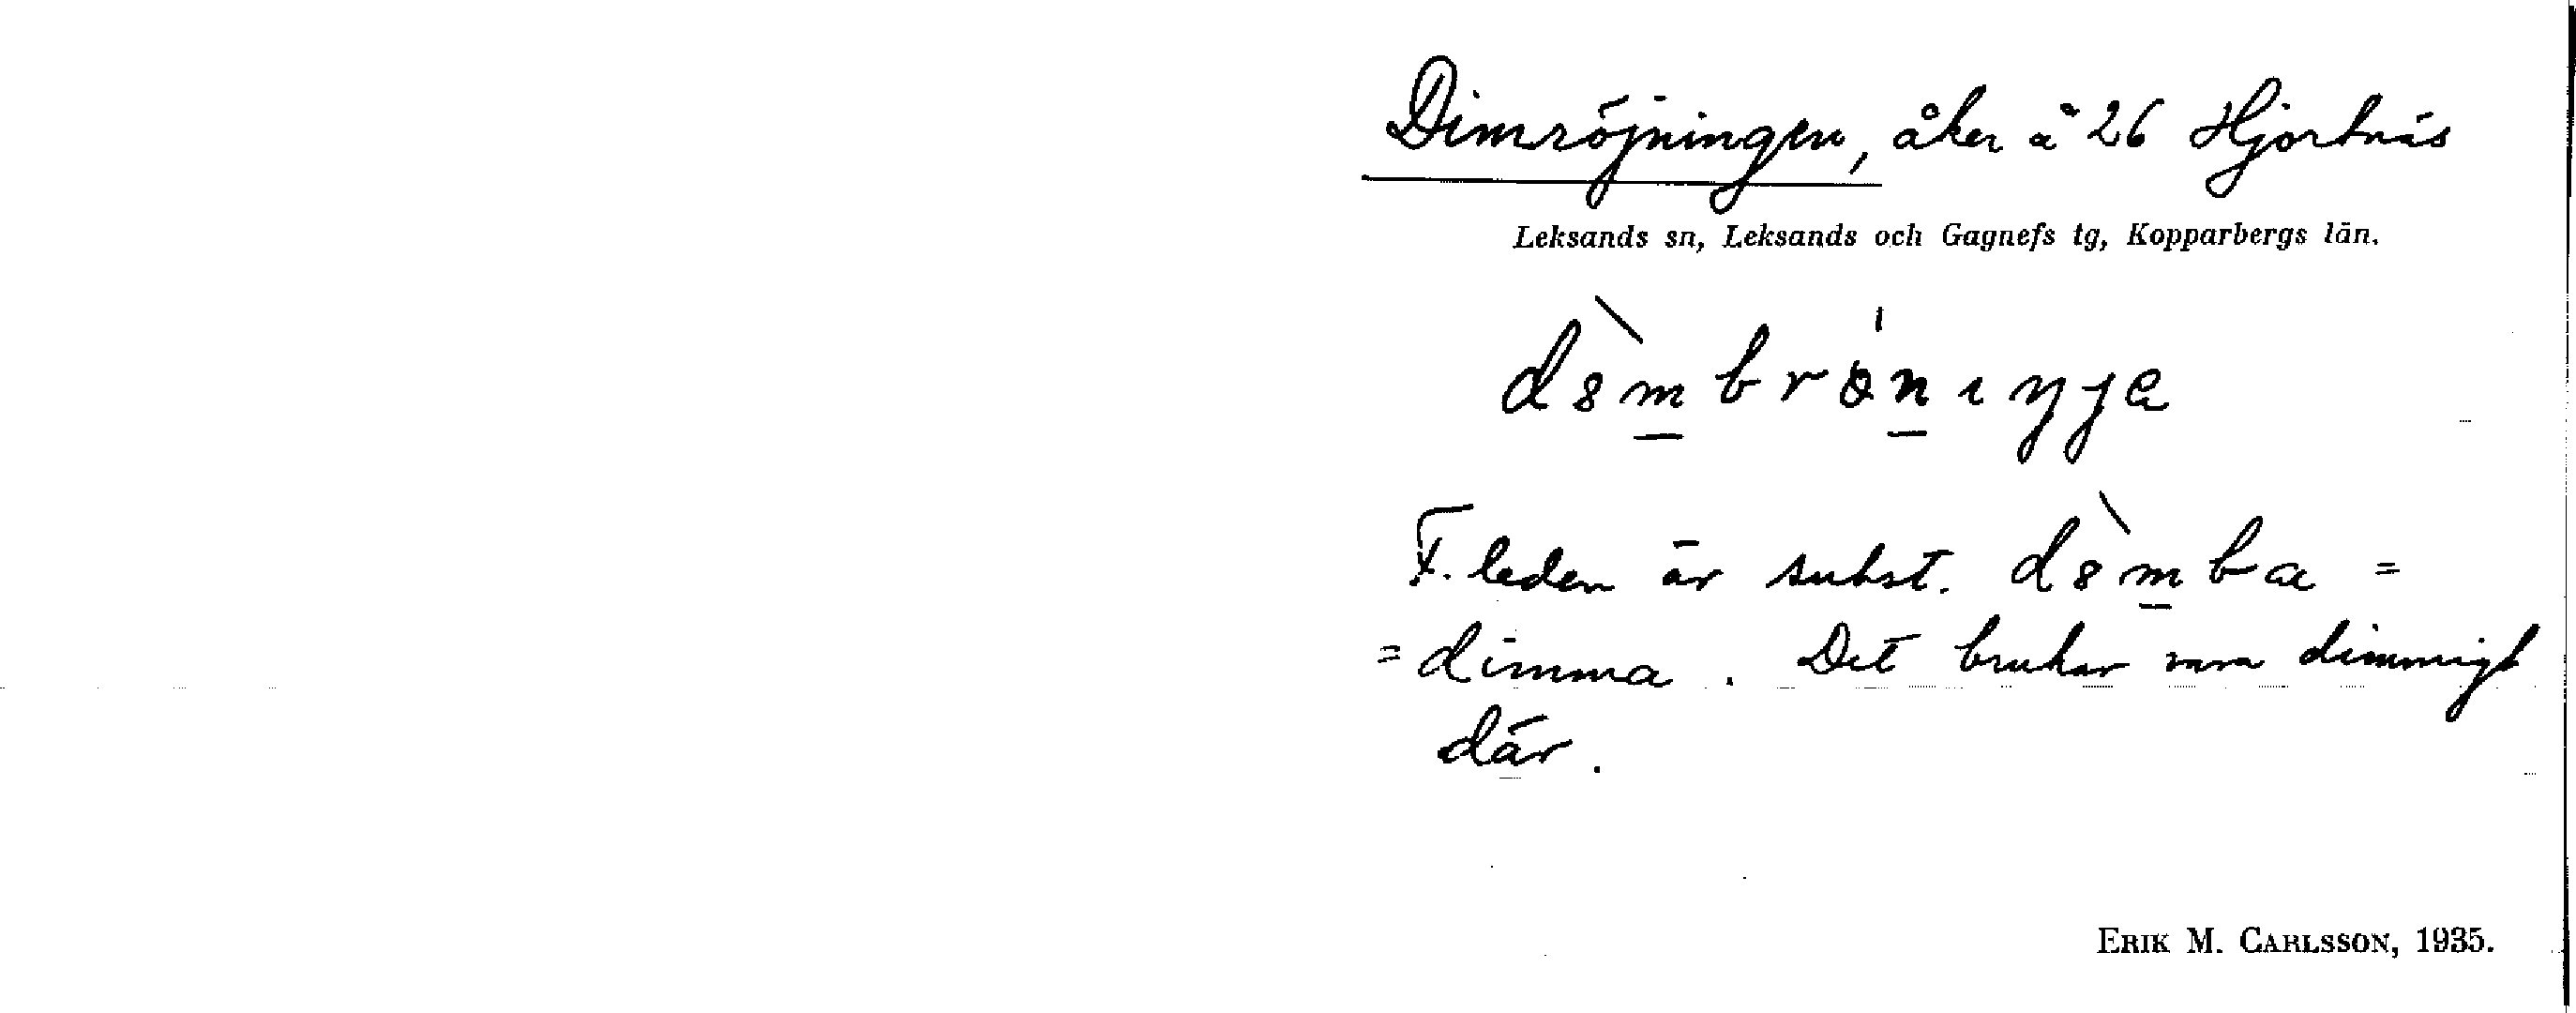 Dimröjningen, åker å 26 Hjortnäs
Leksands sn, Leksands och Gagnefs tg, Kopparbergs län.
F. leden är subst.
= dimma. Det brukar vara dimmigt
där.
ERIK M. CARLSSON, 1935.